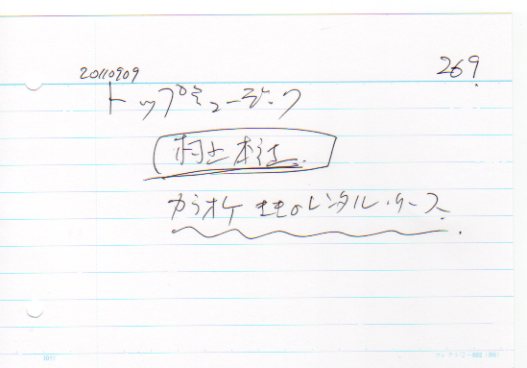 269
20110909
トップミュージック
村上本社
カラオケ のレンタル・リース